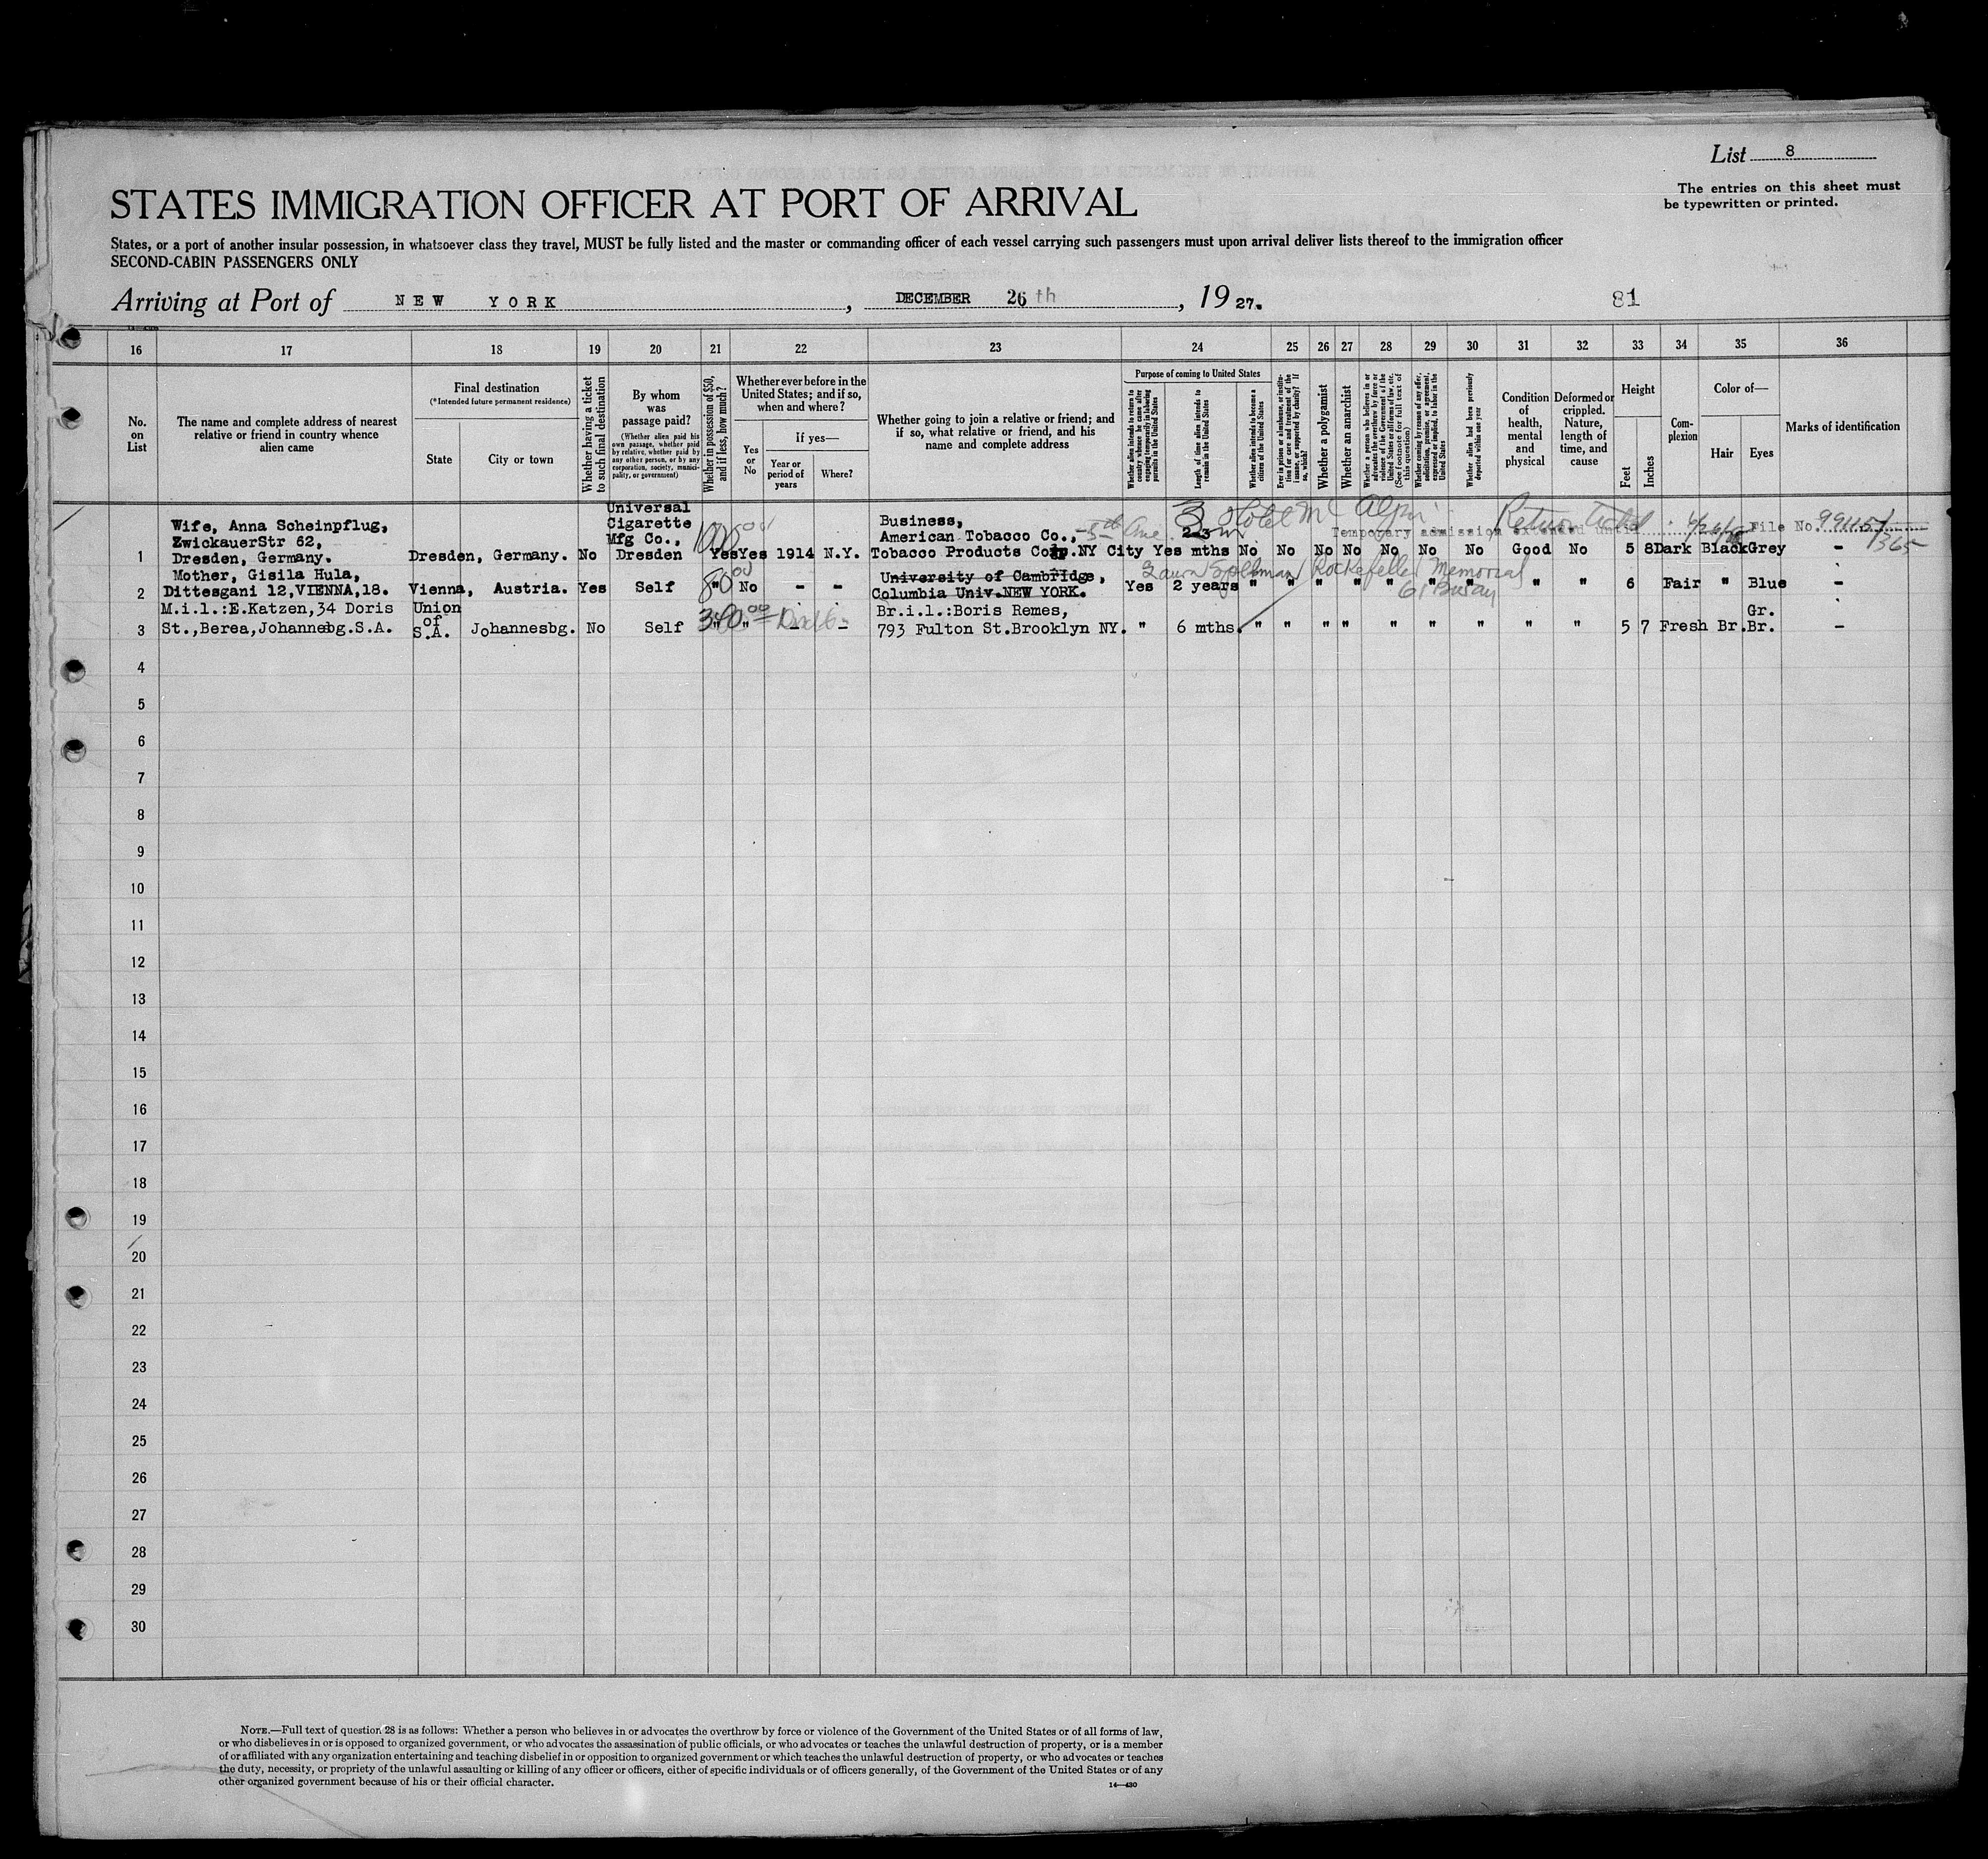 List 8
The entries on this sheet must
be typewritten or printed.
STATES IMMIGRATION OFFICER AT PORT OF ARRIVAL
States, or a port of another insular possession, in whatsoever class they travel, MUST be fully listed and the master or commanding officer of each vessel carrying such passengers must upon arrival deliver lists thereof to the immigration officer
SECOND-CABIN PASSENGERS ONLY
Arriving at Port of NEW YORK, DECEMBER 26th, 1927.
81
16 17 18 19 20 21 22 23 24 25 26 27 28 29 30 31 32 33 34 35 36
No. on List
The name and complete address of nearest relative or friend in country whence alien came
Final destination
(*Intended future permanent residence)
State
City or town
Whether having a ticket to such final destination
By whom was passage paid?
(Whether alien paid his own passage, whether paid by relative, whether paid by any other person, or by any corporation, society, municipality, or government)
Whether in possession of $50, and if less, how much?
Whether ever before in the United States; and if so, when and where?
Yes or No
If yes—
Year or period of years
Where?
Whether going to join a relative or friend; and if so, what relative or friend, and his name and complete address
Purpose of coming to United States
Whether alien intends to return to country whence he came after engaging temporarily in laboring pursuits in the United States
Length of time alien intends to remain in the United States
Whether alien intends to become a citizen of the United States
Ever in prison or almshouse, or institution for care and treatment of the insane, or supported by charity? If so, which?
Whether a polygamist
Whether an anarchist
Whether a person who believes in or advocates the overthrow by force or violence of the Government of the United States or all forms of law, etc. (See footnote for full text of this question)
Whether coming by reason of any offer, solicitation, promise, or agreement, expressed or implied, to labor in the United States
Whether alien had been previously deported within one year
Condition of health, mental and physical
Deformed or crippled. Nature, length of time, and cause
Height
Feet
Inches
Complexion
Color of—
Hair
Eyes
Marks of identification
Universal
Wife, Anna Scheinpflug, Cigarette Business,
ZwickauerStr 62, Mfg Co., American Tobacco Co., 5th Ave 3 Hotel McAlpin Temporary admission extended until File No.
1 Dresden, Germany. Dresden, Germany. No Dresden Yes Yes 1914 N.Y. Tobacco Products Corp.NY City Yes mths No No No No No No No Good No 5 8 Dark Black Grey -
Mother, Gisila Hula, University of Cambridge, Laura Spellman Rockefeller Memorial
2 Dittesgani 12,VIENNA,18. Vienna, Austria. Yes Self " No - - Columbia Univ.NEW YORK. Yes 2 years " " " " " " " " " 6 Fair " Blue -
M.i.l.:E.Katzen,34 Doris Union of Br.i.l.:Boris Remes, Gr.
3 St.,Berea,Johannesbg.S.A. S.A. Johannesbg. No Self " " - - 793 Fulton St.Brooklyn NY. " 6 mths. " " " " " " " " " 5 7 Fresh Br. Br. -
4
5
6
7
8
9
10
11
12
13
14
15
16
17
18
19
20
21
22
23
24
25
26
27
28
29
30
NOTE.—Full text of question 28 is as follows: Whether a person who believes in or advocates the overthrow by force or violence of the Government of the United States or of all forms of law,
or who disbelieves in or is opposed to organized government, or who advocates the assassination of public officials, or who advocates or teaches the unlawful destruction of property, or is a member
of or affiliated with any organization entertaining and teaching disbelief in or opposition to organized government or which teaches the unlawful destruction of property, or who advocates or teaches
the duty, necessity, or propriety of the unlawful assaulting or killing of any officer or officers, either of specific individuals or of officers generally, of the Government of the United States or of any
other organized government because of his or their official character.
14—430